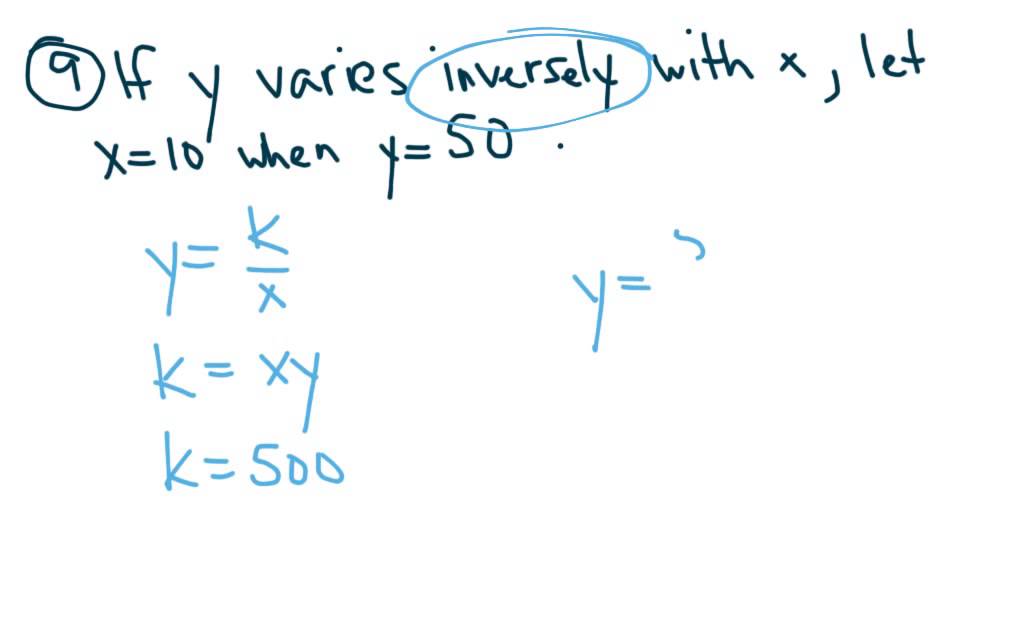 9 If y varies inversely with x, let
x=10 when y=50.
y = k/x
k = xy
k = 500
y =